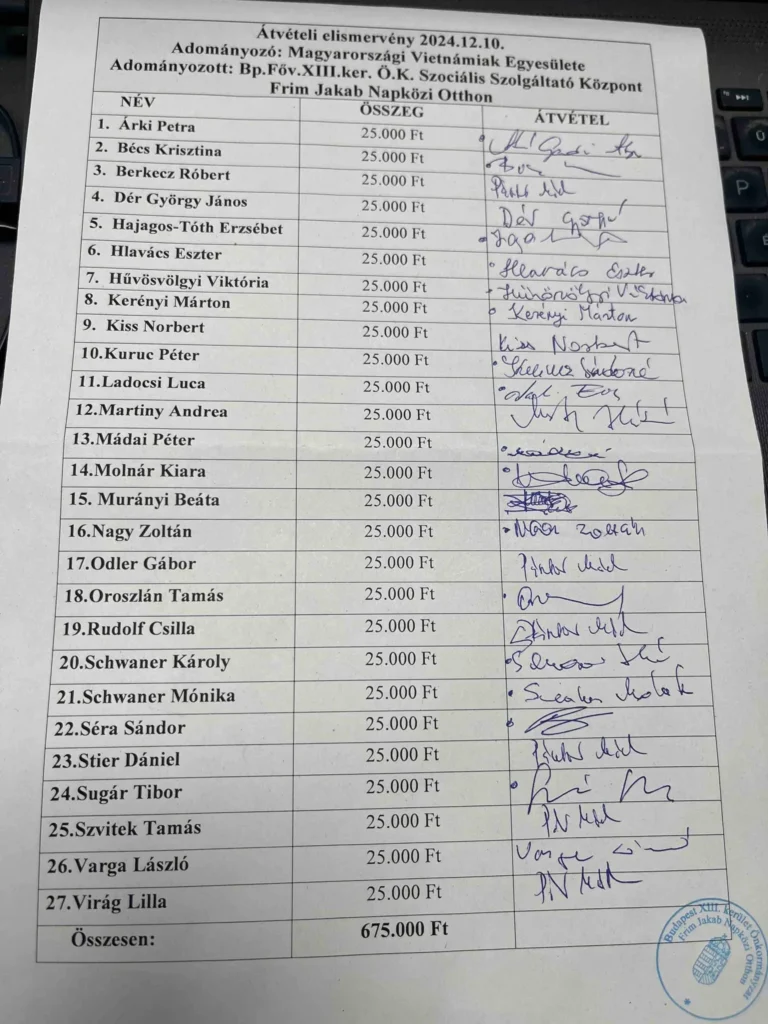 Átvételi elismervény 2024.12.10.
Adományozó: Magyarországi Vietnámiak Egyesülete
Adományozott: Bp.Főv.XIII.ker. Ö.K. Szociális Szolgáltató Központ
Frim Jakab Napközi Otthon
NÉV ÖSSZEG ÁTVÉTEL
1. Árki Petra 25.000 Ft
2. Bécs Krisztina 25.000 Ft
3. Berkecz Róbert 25.000 Ft
4. Dér György János 25.000 Ft Dér
5. Hajagos-Tóth Erzsébet 25.000 Ft
6. Hlavács Eszter 25.000 Ft Hlavács Eszter
7. Hűvösvölgyi Viktória 25.000 Ft Hűvösvölgyi Viktória
8. Kerényi Márton 25.000 Ft Kerényi Márton
9. Kiss Norbert 25.000 Ft Kiss Norbert
10.Kuruc Péter 25.000 Ft
11.Ladocsi Luca 25.000 Ft
12.Martiny Andrea 25.000 Ft
13.Mádai Péter 25.000 Ft
14.Molnár Kiara 25.000 Ft
15. Murányi Beáta 25.000 Ft
16.Nagy Zoltán 25.000 Ft Nagy Zoltán
17.Odler Gábor 25.000 Ft
18.Oroszlán Tamás 25.000 Ft
19.Rudolf Csilla 25.000 Ft
20.Schwaner Károly 25.000 Ft
21.Schwaner Mónika 25.000 Ft
22.Séra Sándor 25.000 Ft
23.Stier Dániel 25.000 Ft
24.Sugár Tibor 25.000 Ft
25.Szvitek Tamás 25.000 Ft
26.Varga László 25.000 Ft Varga
27.Virág Lilla 25.000 Ft
Összesen: 675.000 Ft
Budapest XIII. kerület Önkormányzat
Frim Jakab Napközi Otthon